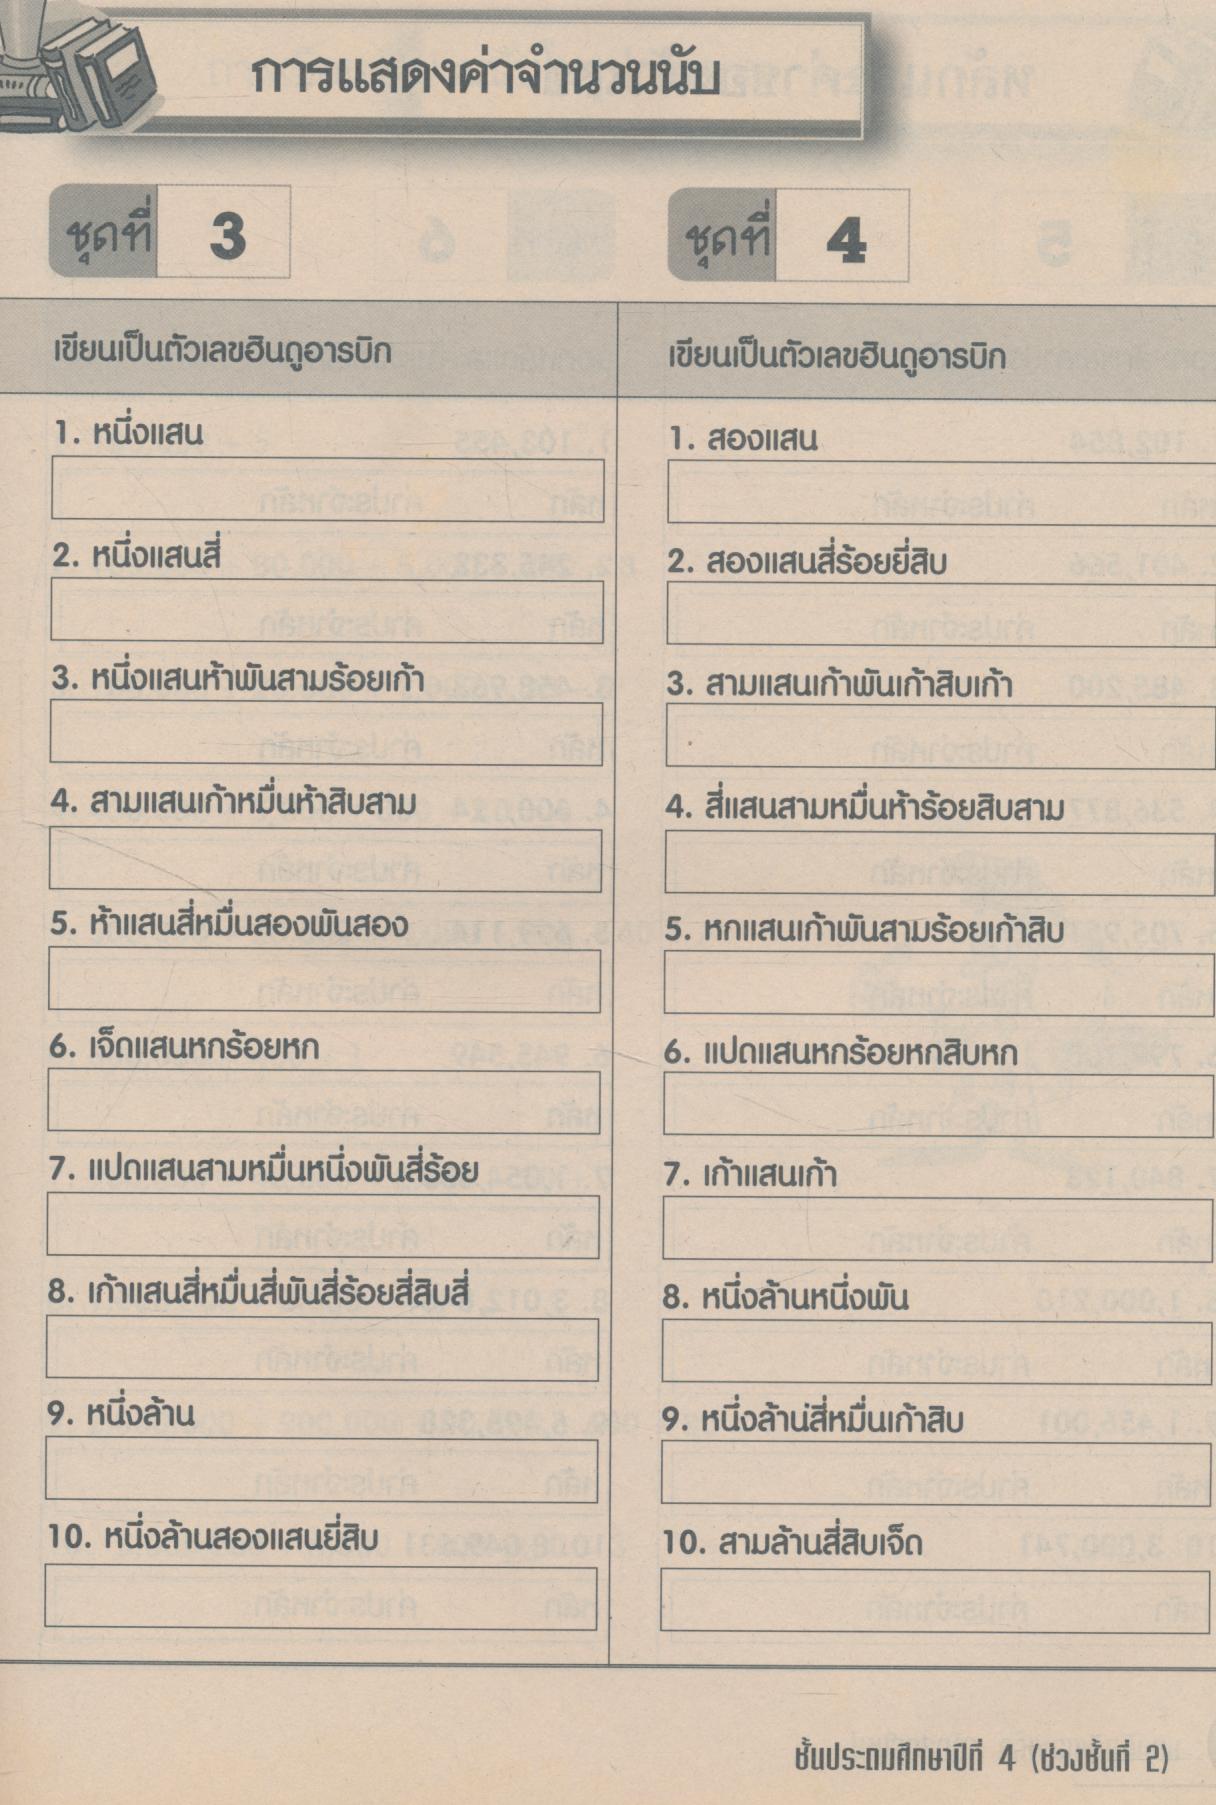 การแสดงค่าจำนวนนับ
ชุดที่ 3
เขียนเป็นตัวเลขฮินดูอารบิก
1. หนึ่งแสน
2. หนึ่งแสนสี่
3. หนึ่งแสนห้าพันสามร้อยเก้า
4. สามแสนเก้าหมื่นห้าสิบสาม
5. ห้าแสนสี่หมื่นสองพันสอง
6. เจ็ดแสนหกร้อยหก
7. แปดแสนสามหมื่นหนึ่งพันสี่ร้อย
8. เก้าแสนสี่หมื่นสี่พันสี่ร้อยสี่สิบสี่
9. หนึ่งล้าน
10. หนึ่งล้านสองแสนยี่สิบ
ชุดที่ 4
เขียนเป็นตัวเลขฮินดูอารบิก
1. สองแสน
2. สองแสนสี่ร้อยยี่สิบ
3. สามแสนเก้าพันเก้าสิบเก้า
4. สี่แสนสามหมื่นห้าร้อยสิบสาม
5. หกแสนเก้าพันสามร้อยเก้าสิบ
6. แปดแสนหกร้อยหกสิบหก
7. เก้าแสนเก้า
8. หนึ่งล้านหนึ่งพัน
9. หนึ่งล้านสี่หมื่นเก้าสิบ
10. สามล้านสี่สิบเจ็ด
ชั้นประถมศึกษาปีที่ 4 (ช่วงชั้นที่ 2)